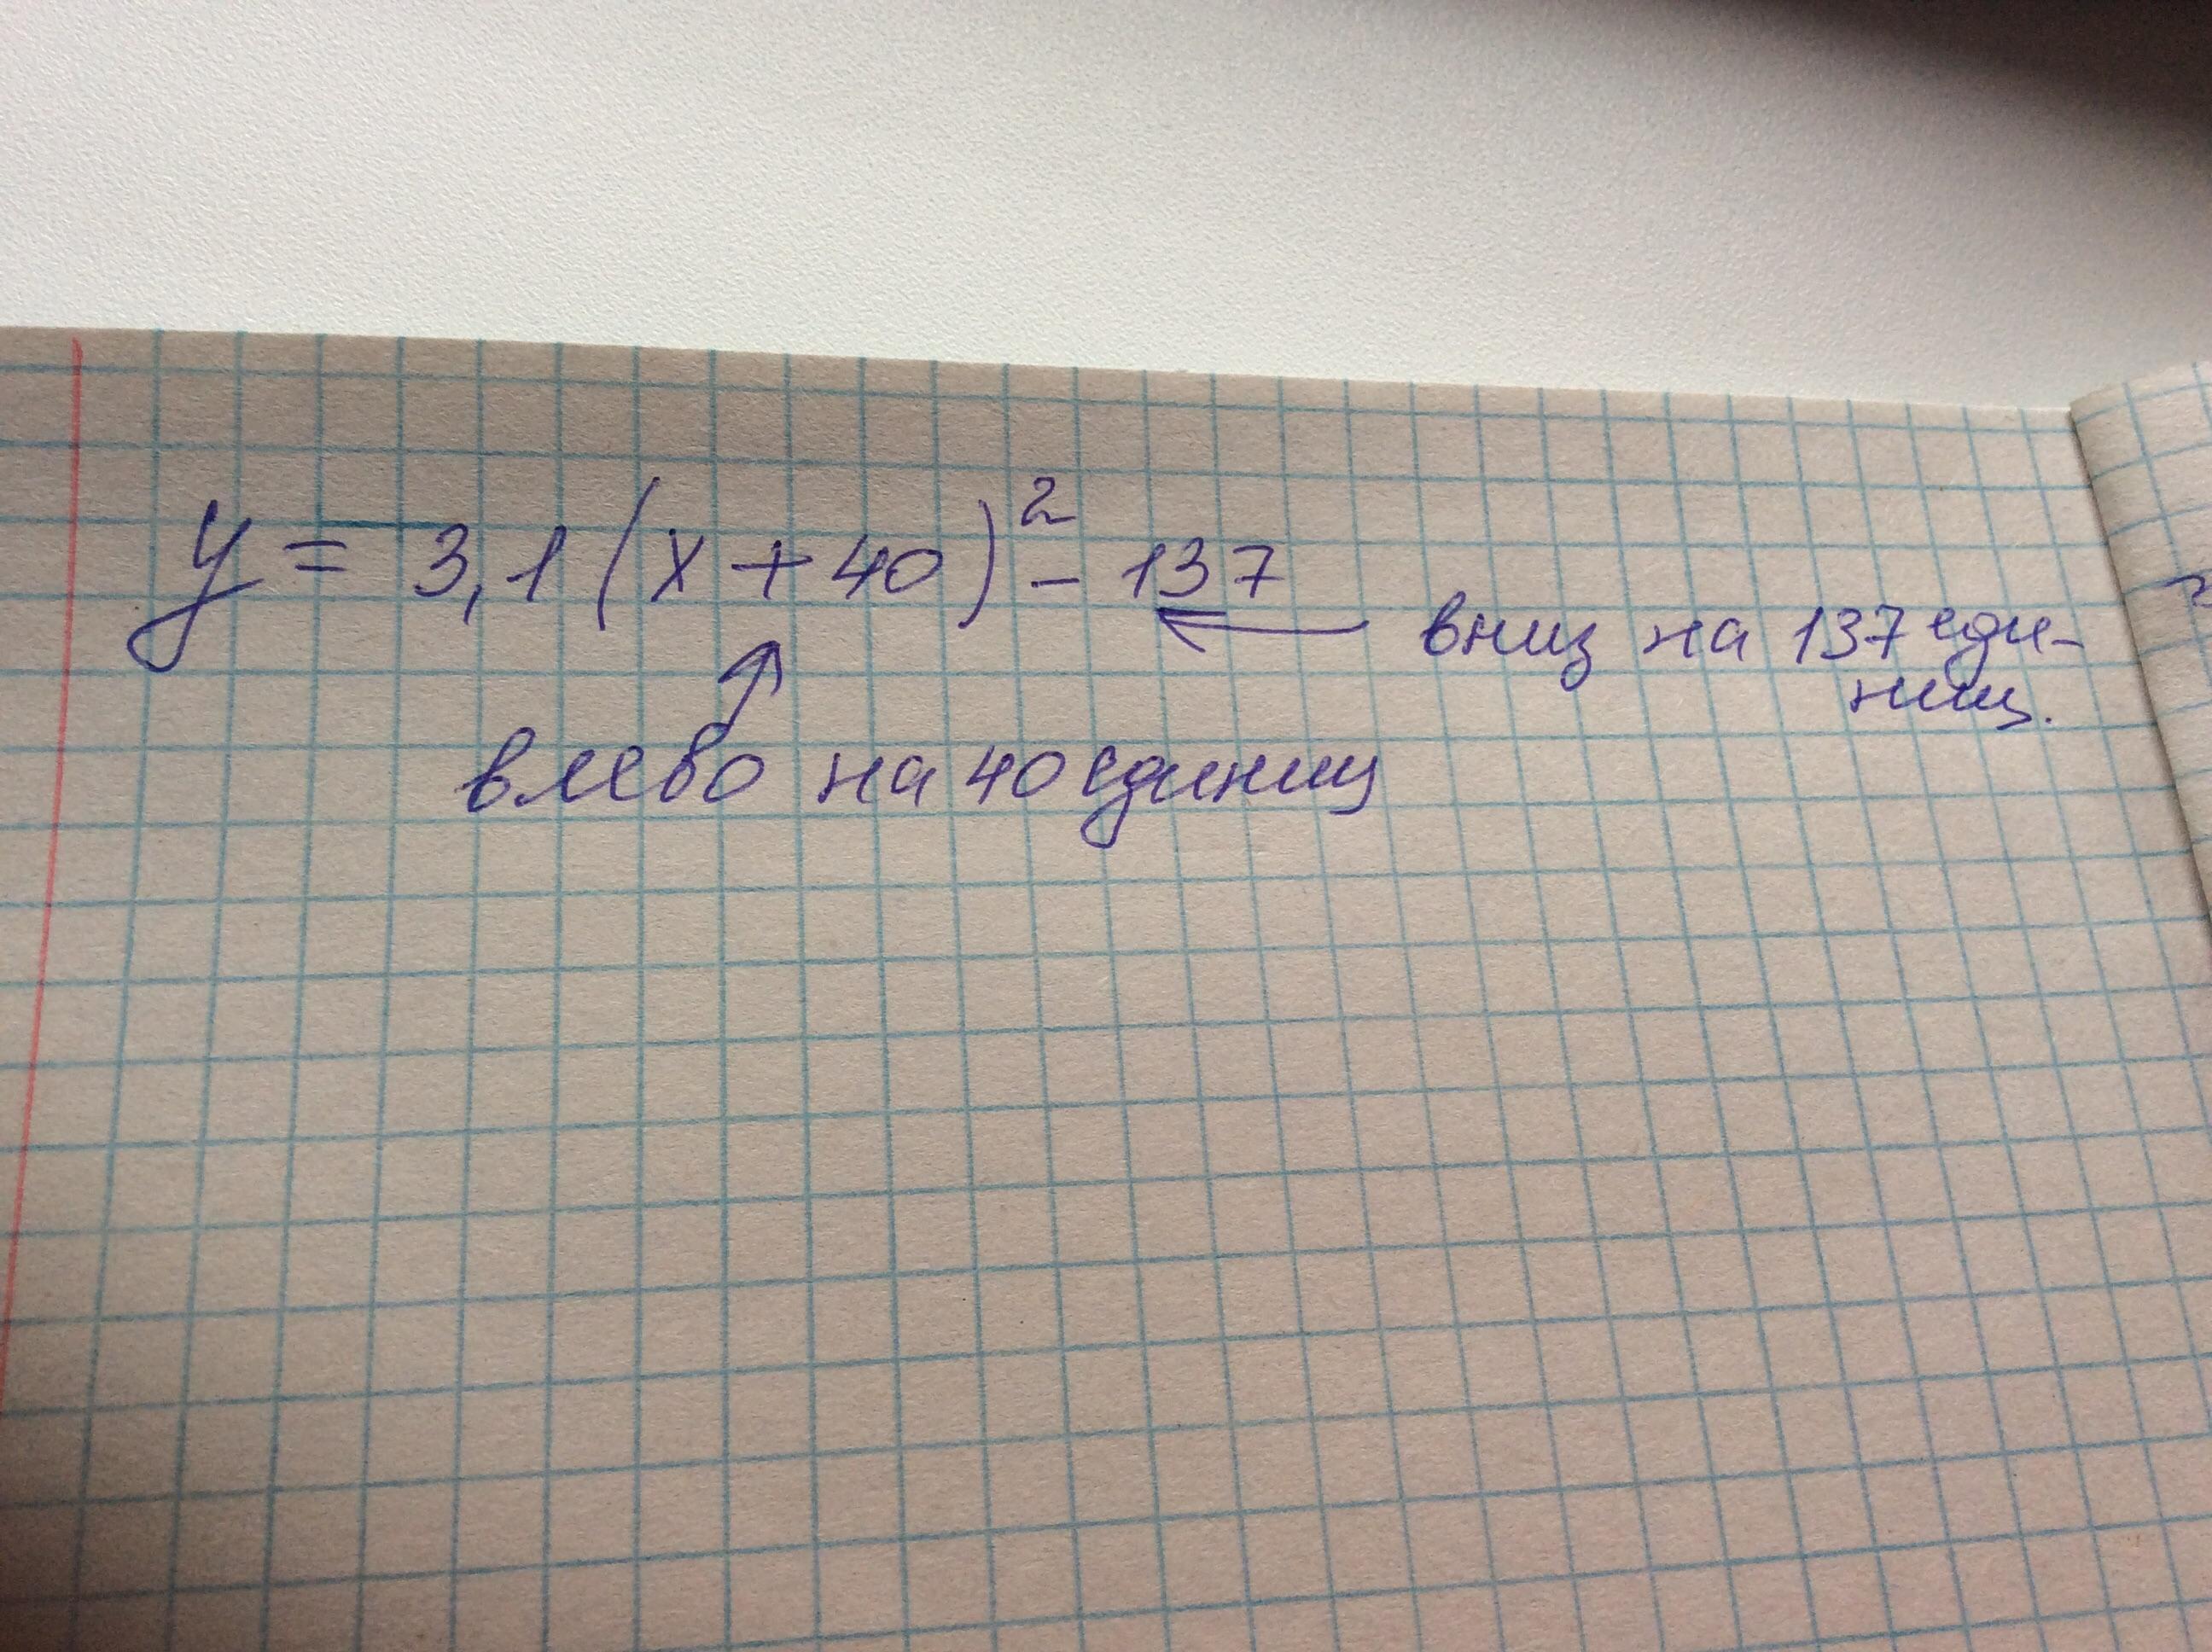 y = 3,1 (x + 40)² - 137
вниз на 137 еди-
ниц.
влево на 40 единиц